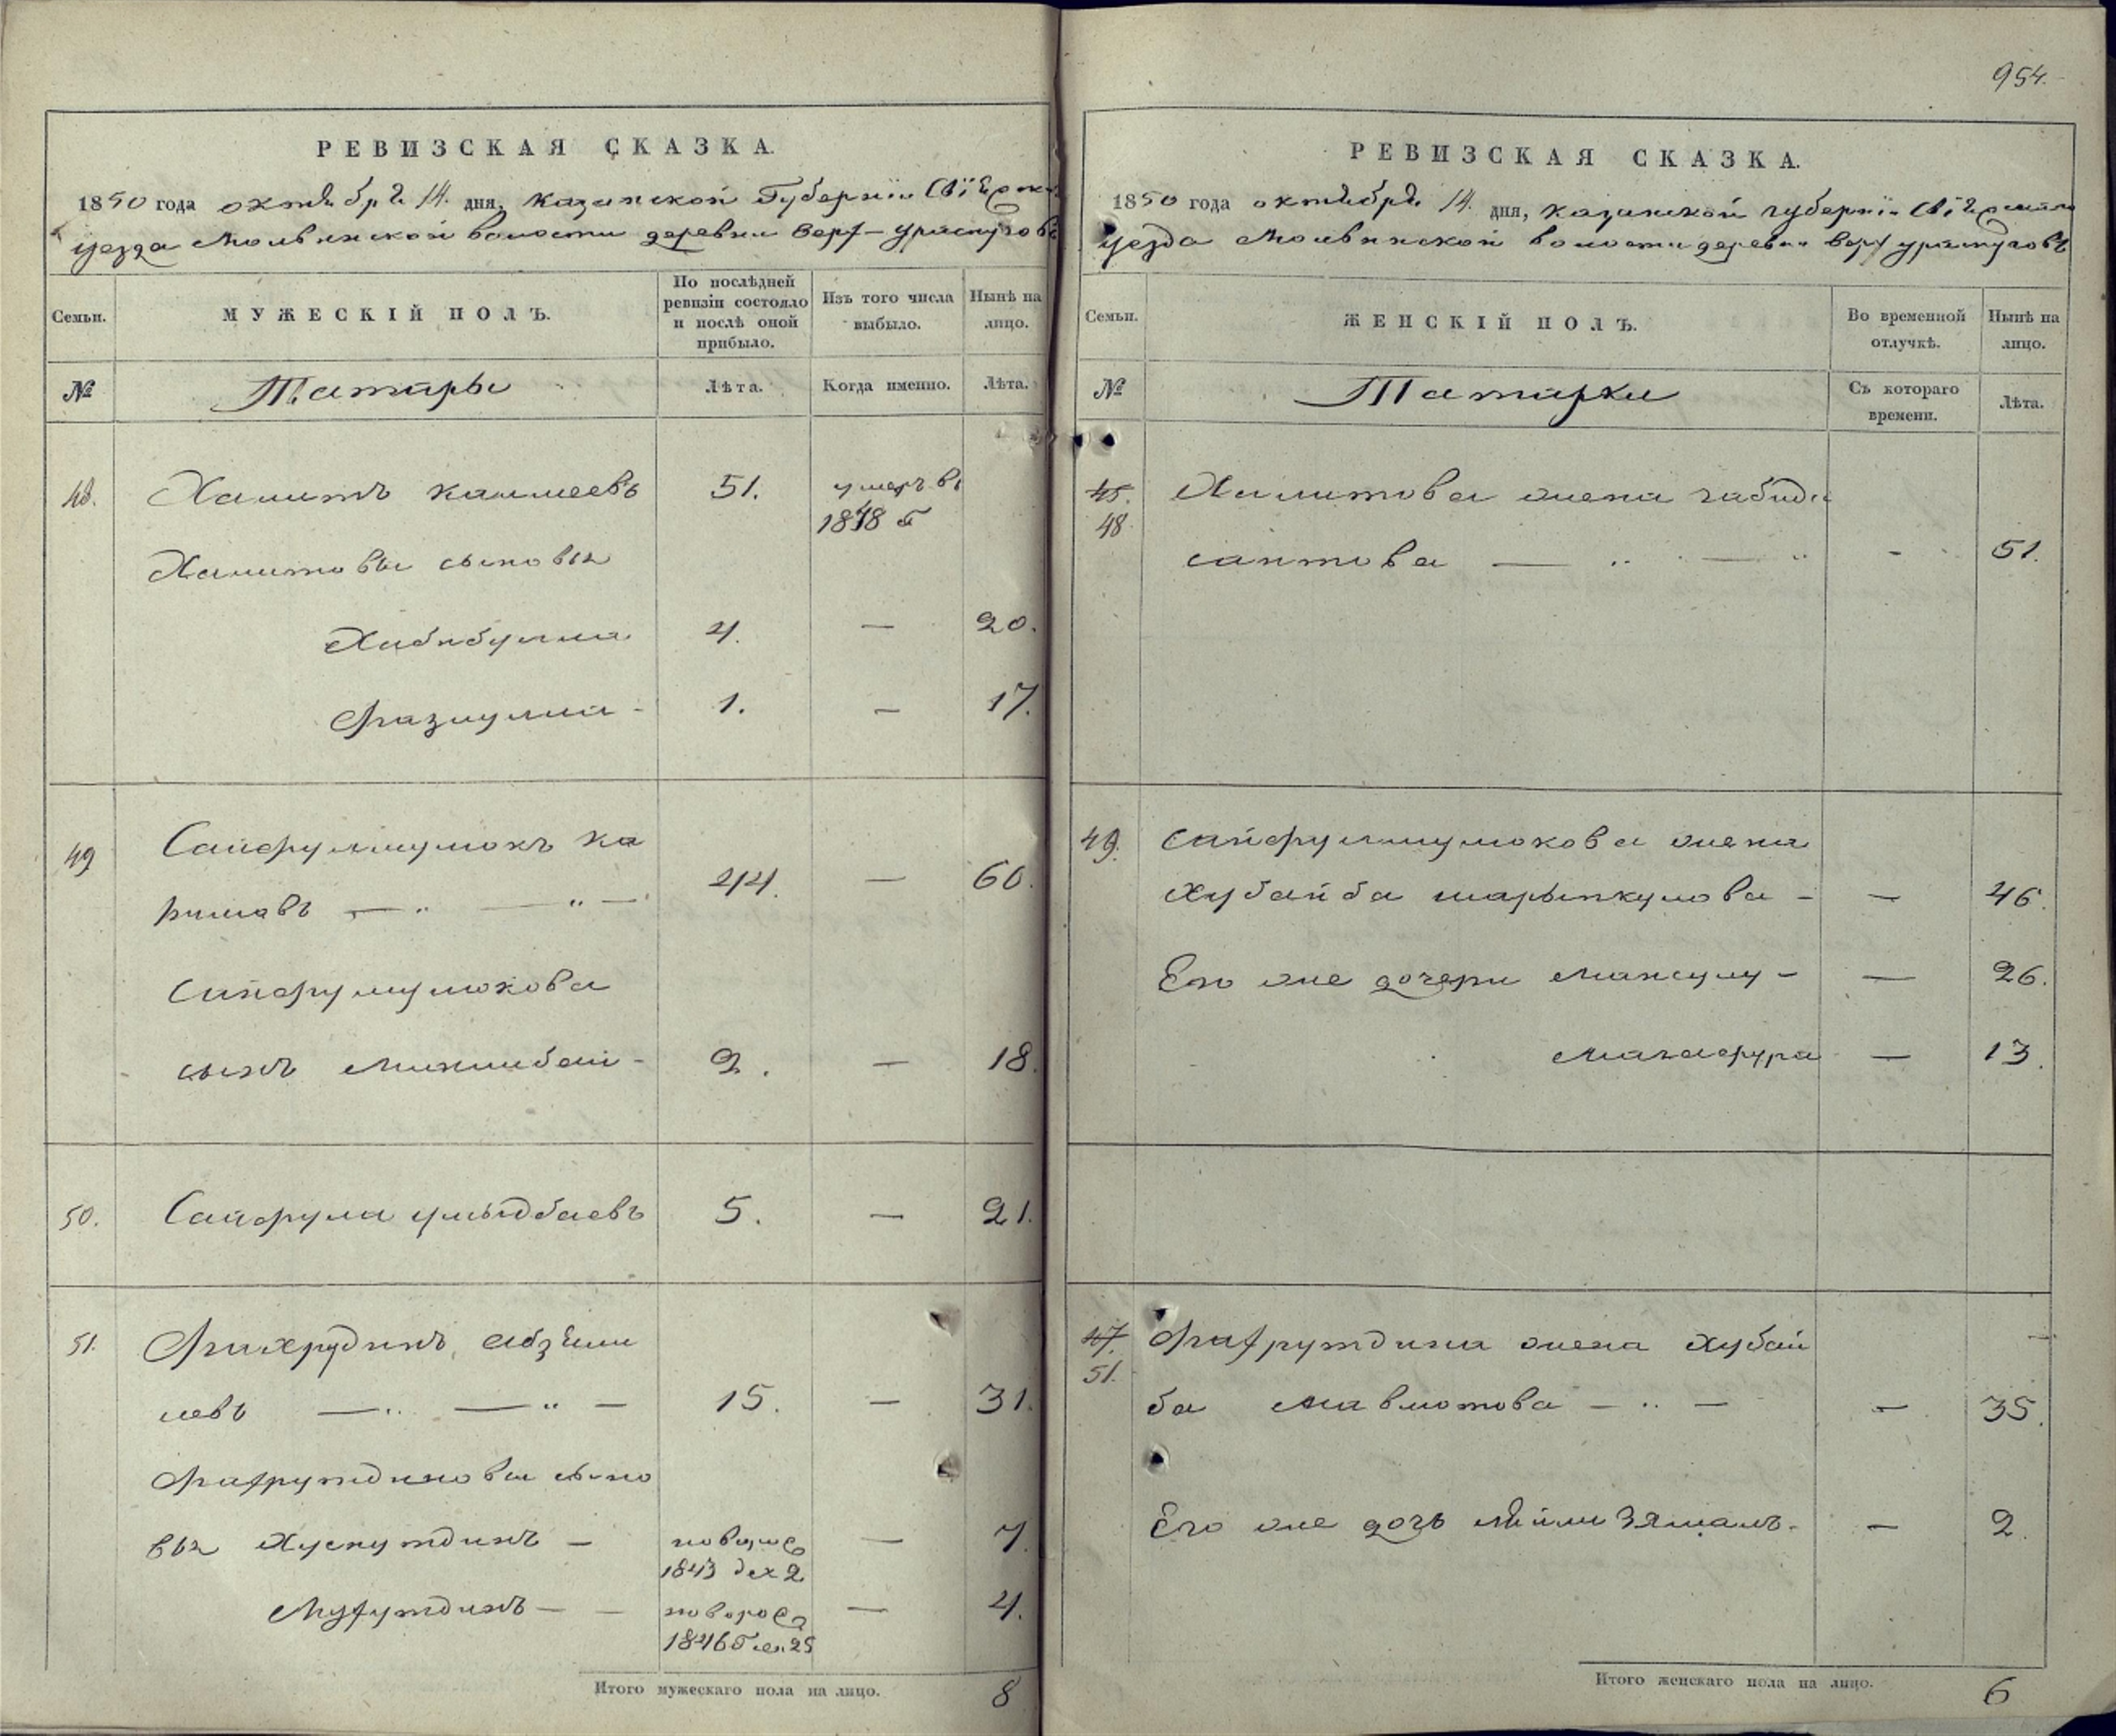 954.
РЕВИЗСКАЯ СКАЗКА.
1850 года октября 14. дня, Казанской Губернiи Свiяжска
уезда Мольвинской волости деревни Верх-Ураспугова
Семьи.
МУЖЕСКIЙ ПОЛЪ.
По послѣдней
ревизiи состояло
и послѣ оной
прибыло.
Изъ того числа
выбыло.
Нынѣ на
лицо.
№
Татары
Лѣта.
Когда именно.
Лѣта.
48.
Хамитъ
51.
умеръ въ
1848 г
Хамитовы сыновья
Хабибулла
4.
—
20.
Фазлулла -
1.
—
17.
49
Сайфулмулюкъ Ка
римовъ — „ — „ —
44.
—
60.
Сайфулмулюкова
сынъ Минлибай -
2.
—
18.
50.
Сайфулла
5.
—
21.
51.
Фахрудинъ
левъ — „ — „ —
15.
—
31.
Фахрутдиновы сыно
вья Хуснутдинъ —
новорож
1843 дек 2
—
7.
— —
новорож
1846 25
—
4.
Итого мужескаго пола на лицо.
8
РЕВИЗСКАЯ СКАЗКА.
1850 года октября 14. дня, Казанской губернiи Свiяжска
уезда Мольвинской волости деревни Верх Ураспуговъ
Семьи.
ЖЕНСКIЙ ПОЛЪ.
Во временной
отлучкѣ.
Нынѣ на
лицо.
№
Татарки
Съ котораго
времени.
Лѣта.
45.
48
Хамитова жена Габида
саитова — „ — „
-
51.
49.
Сайфулмулюкова жена
Хубайба Шарыпкулова -
—
46.
Его же дочери -
—
26.
Магафура
—
13.
47.
51.
Фахрутдина жена Хубай
ба Мавлютова — „ —
—
35.
Его же дочь -
—
2.
Итого женскаго пола на лицо.
6